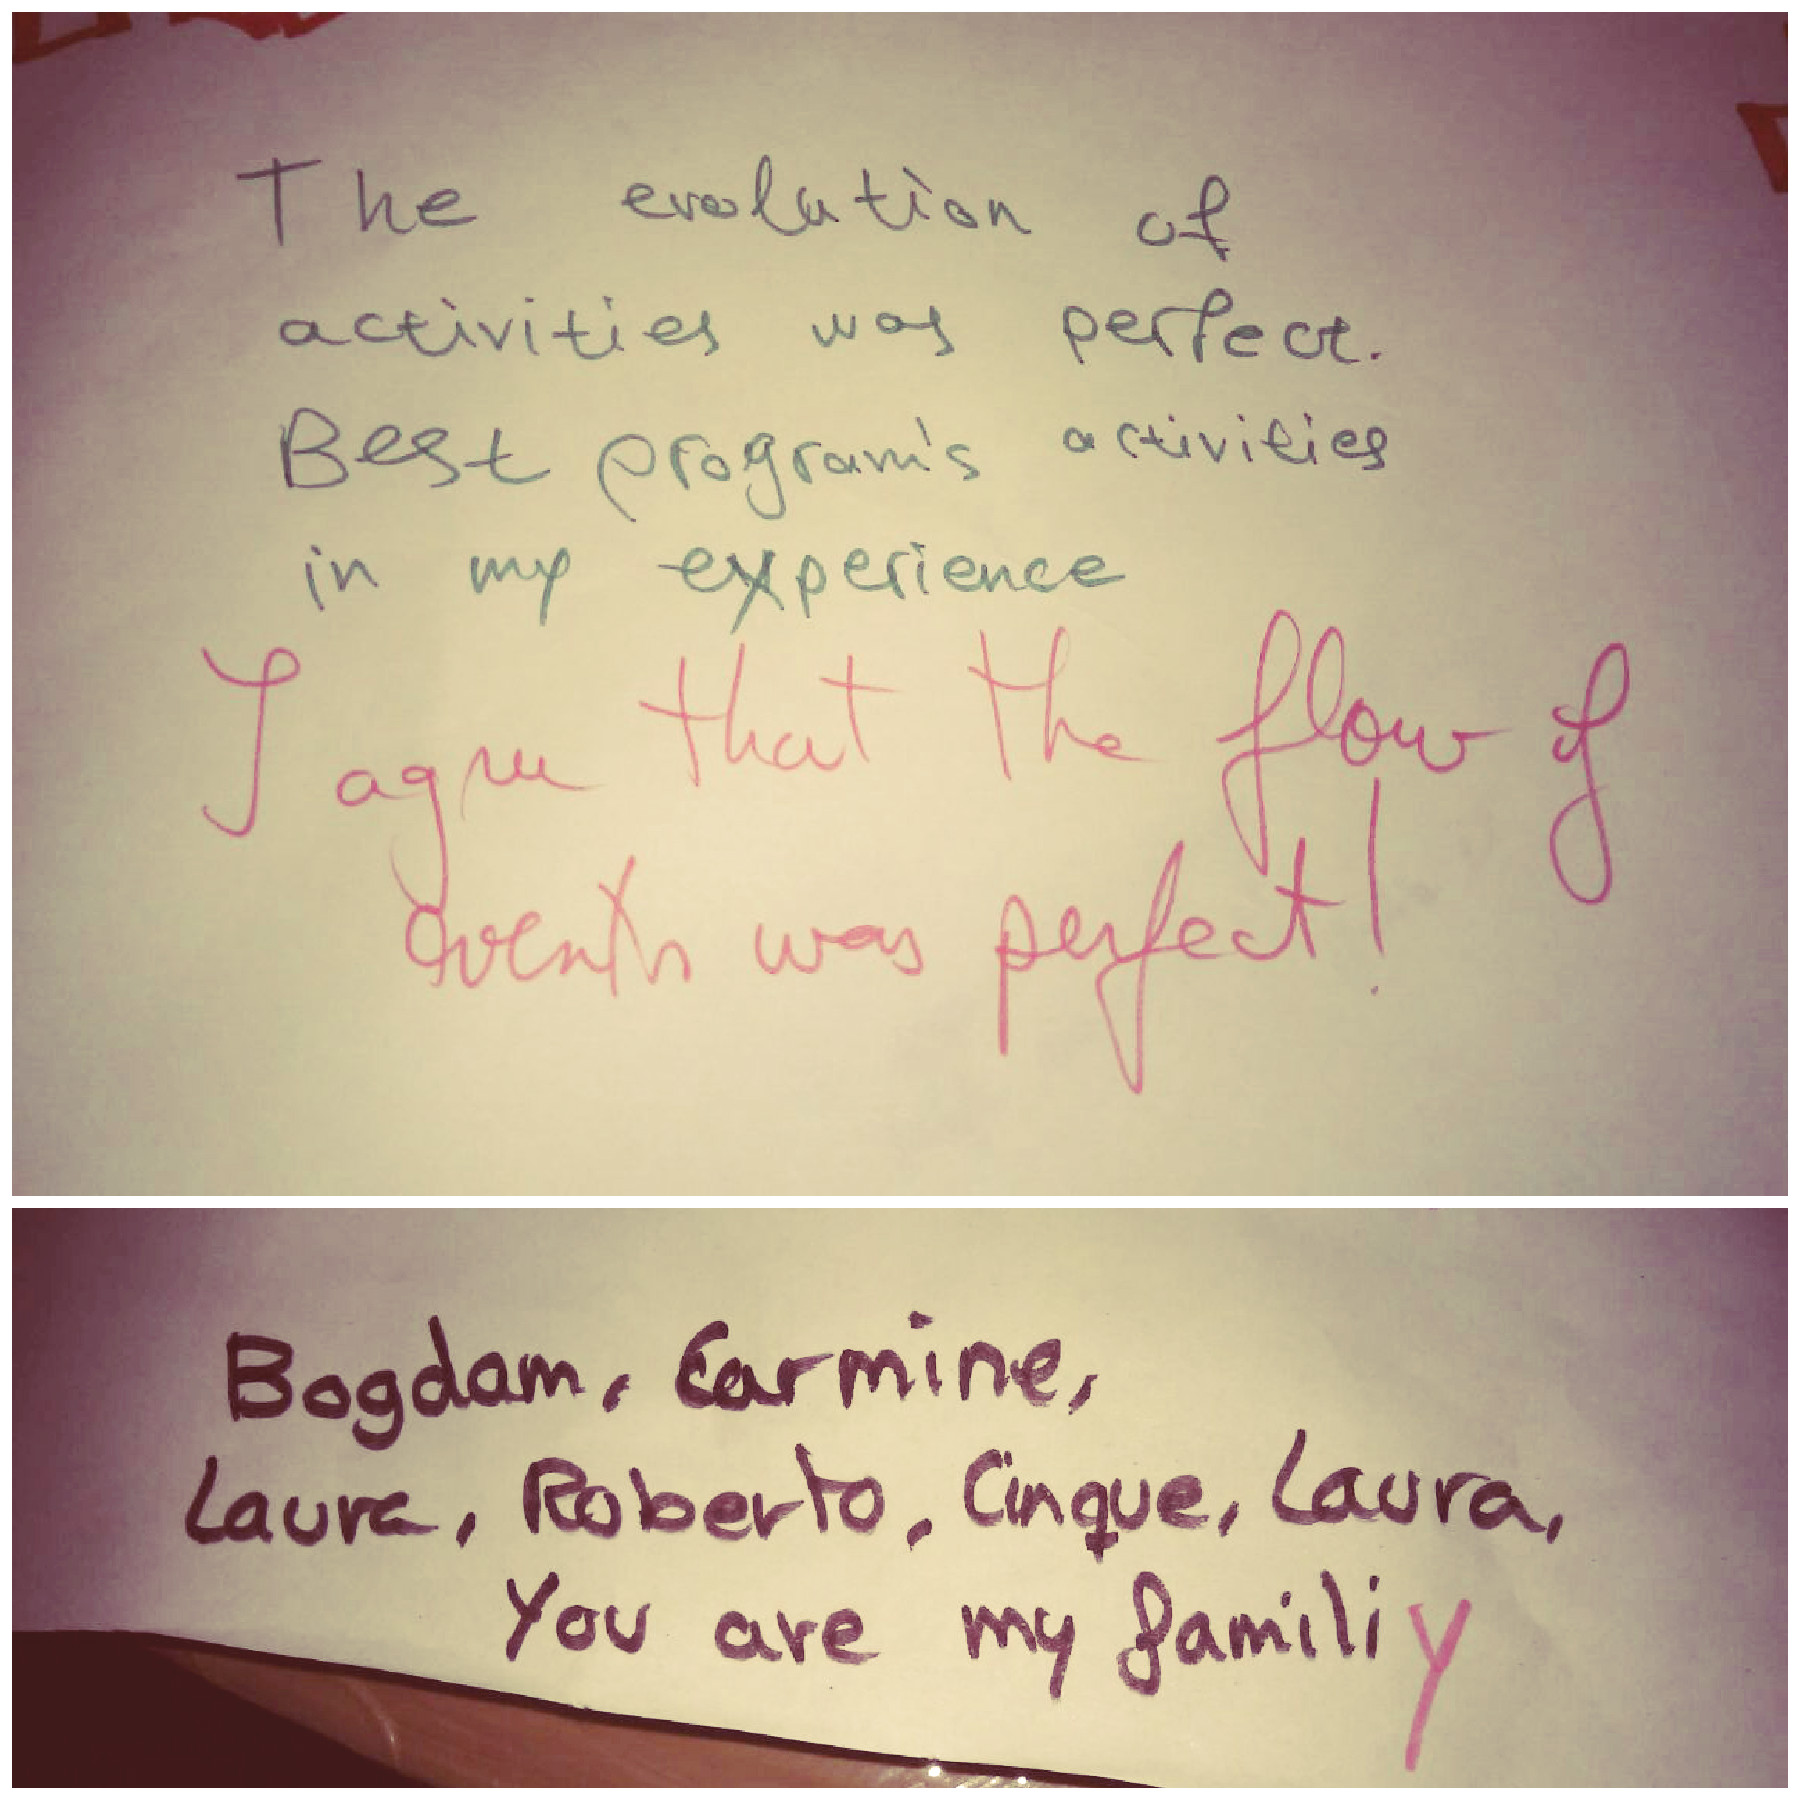 The evolution of
activities was perfect.
Best program's activities
in my experience
I agree that the flow of
events was perfect!
Bogdam, Carmine,
Laura, Roberto, Cinque, Laura,
You are my familiy